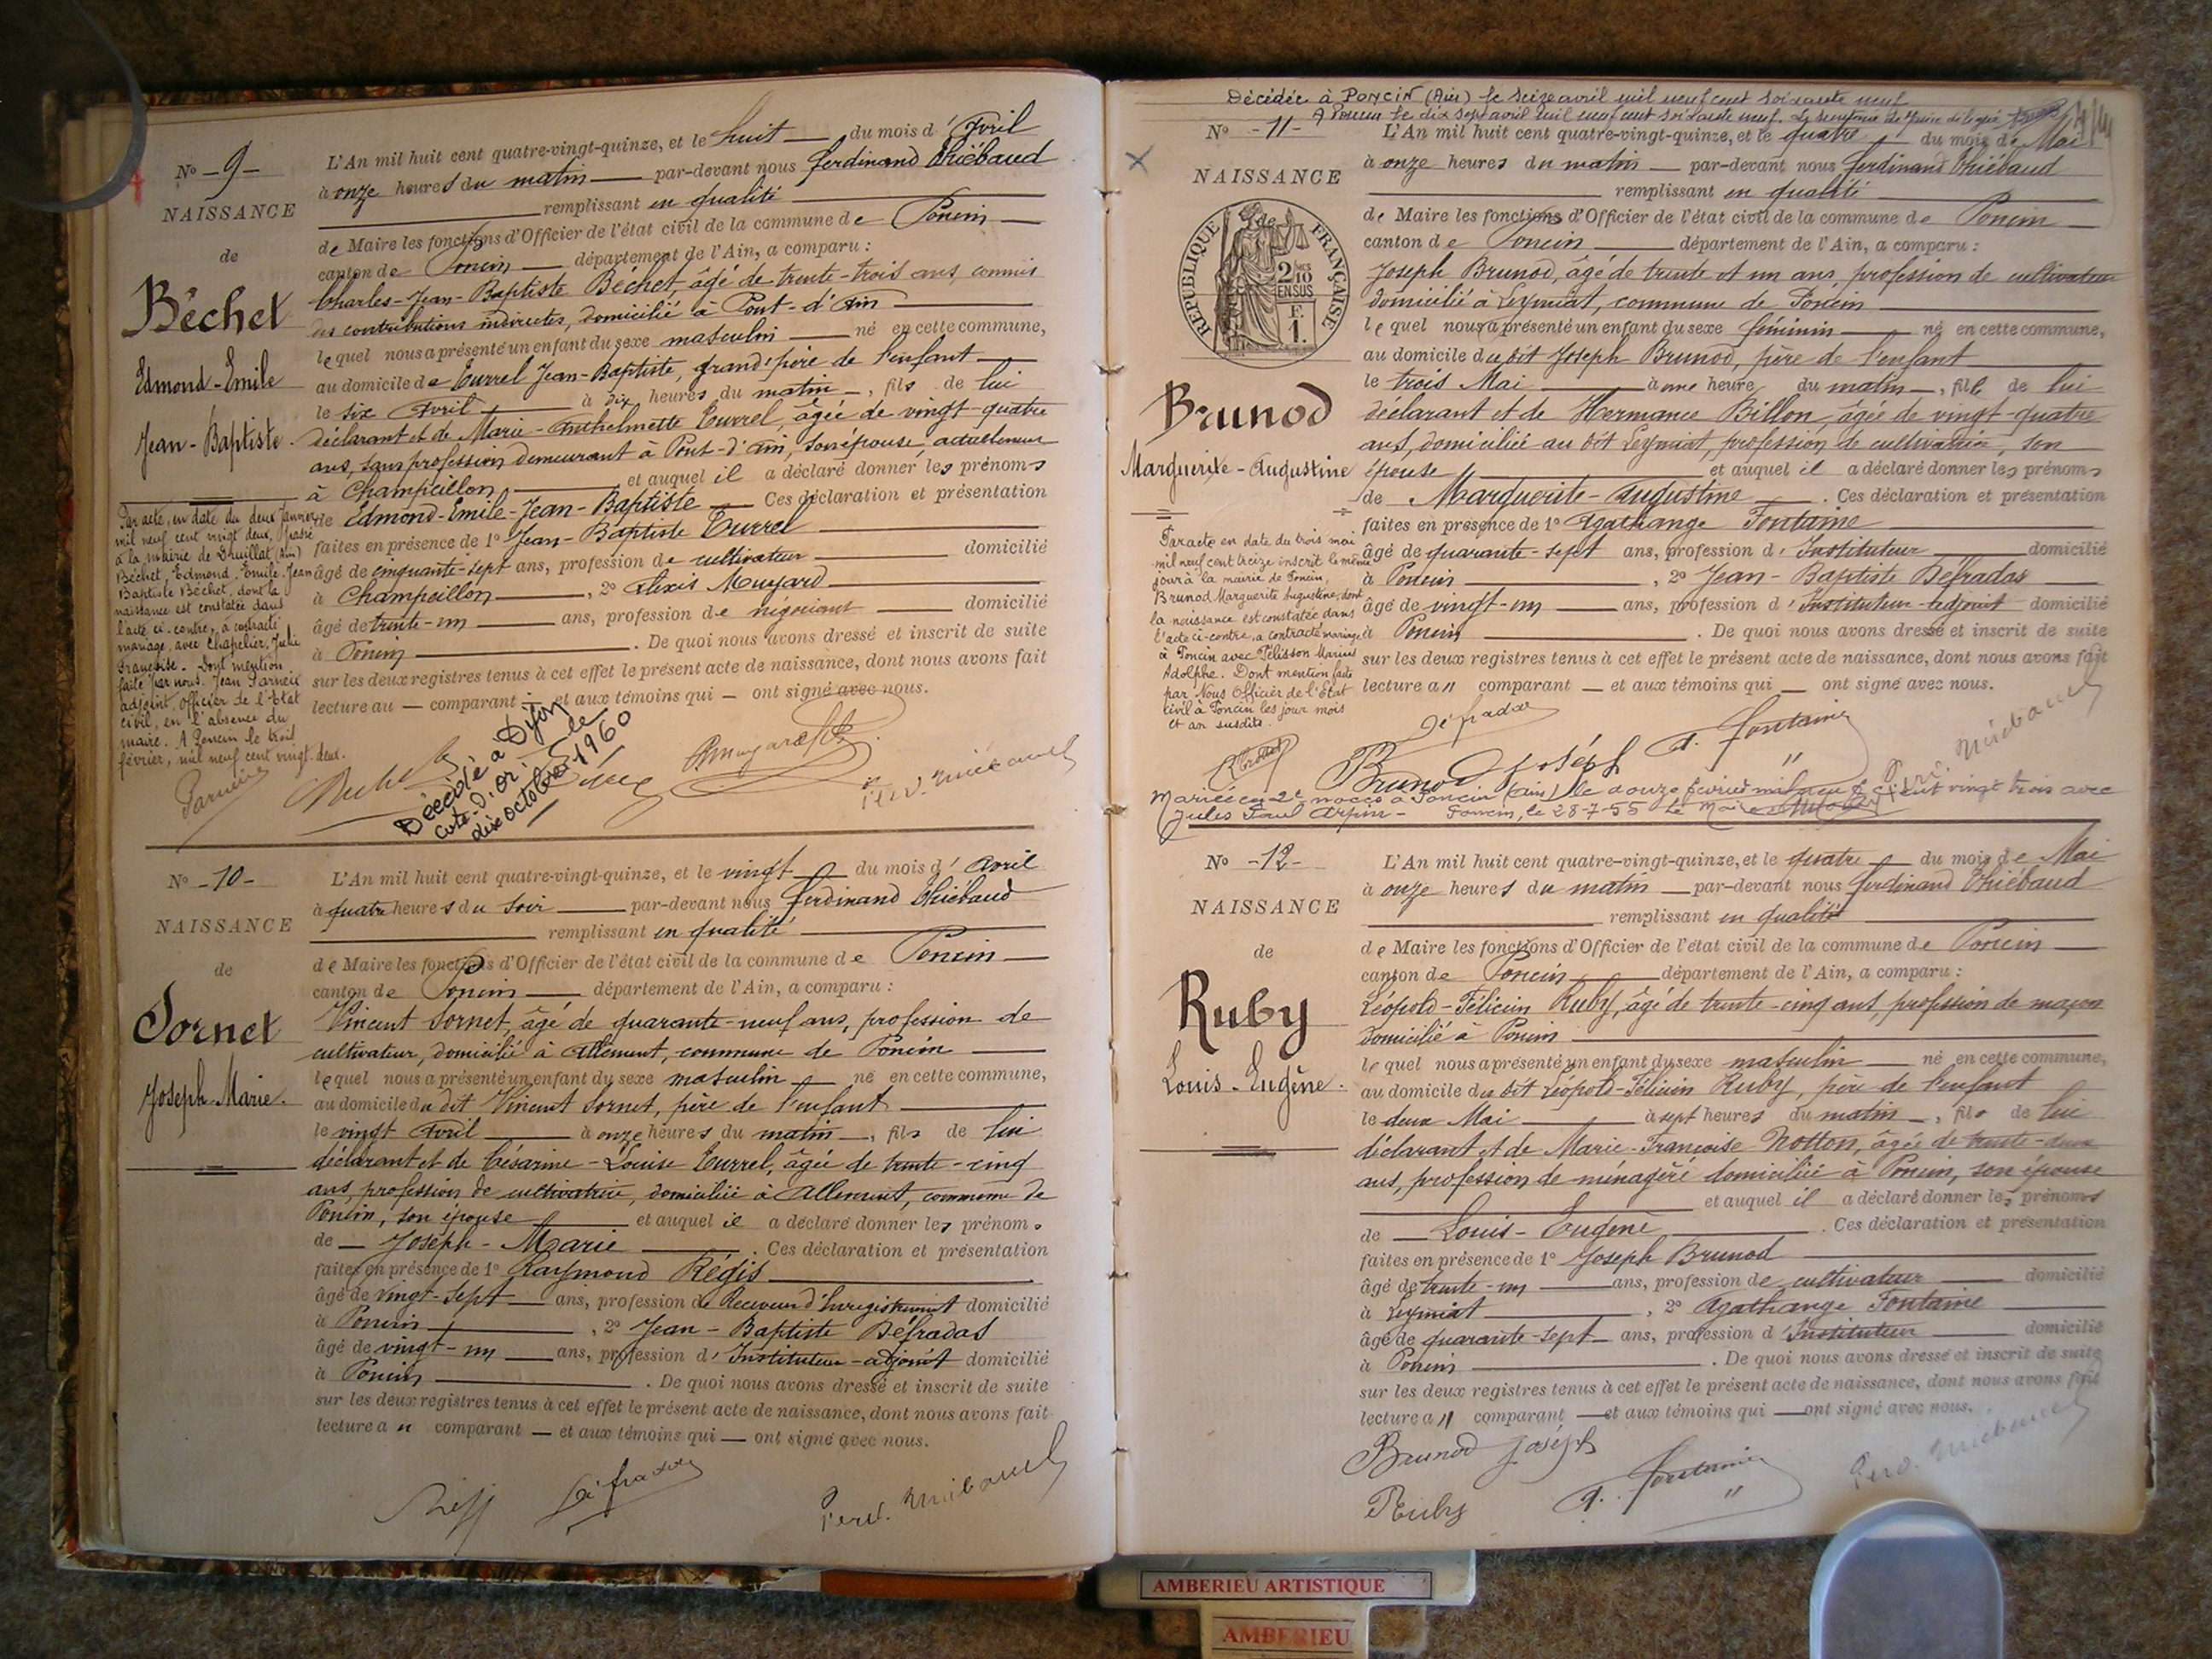 No - 9 -
NAISSANCE
de
Béchet
Edmond-Emile
Jean-Baptiste.
L'An mil huit cent quatre-vingt-quinze, et le huit du mois d'Avril
à onze heures du matin par-devant nous Ferdinand Thiébaud
remplissant en qualité
de Maire les fonctions d'Officier de l'état civil de la commune de Poncin
canton de Poncin département de l'Ain, a comparu :
Charles-Jean-Baptiste Béchet, âgé de trente-trois ans, commis
des contributions indirectes, domicilié à Pont-d'Ain
lequel nous a présenté un enfant du sexe masculin né en cette commune,
au domicile de Curvel Jean-Baptiste, grand'père de l'enfant
le six Avril à dix heures du matin, fils de lui
déclarant et de Marie-Anthelmette Currel, âgée de vingt-quatre
ans, sans profession demeurant à Pont-d'Ain, son épouse, actuellement
à Champeillon et auquel il a déclaré donner les prénoms
de Edmond-Emile-Jean-Baptiste Ces déclaration et présentation
faites en présence de 1o Jean-Baptiste Currel
âgé de cinquante-sept ans, profession de cultivateur domicilié
à Champeillon, 2o Alexis Mugard
âgé de trente-un ans, profession de négociant domicilié
à Poncin. De quoi nous avons dressé et inscrit de suite
sur les deux registres tenus à cet effet le présent acte de naissance, dont nous avons fait
lecture au comparant et aux témoins qui ont signé avec nous.
Par acte, en date du deux Janvier
mil neuf cent vingt deux, passé
à la mairie de Druillat (Ain)
Béchet, Edmond. Emile. Jean
Baptiste Béchet, dont la
naissance est constatée dans
l'acte ci-contre, a contracté
mariage, avec Chapelier, Julie
Françoise. Dont mention
faite par nous. Jean Parneix
adjoint, Officier de l'Etat
civil, en l'absence du
maire. A Poncin le trois
février, mil neuf cent vingt-deux.
Décédé à Dijon
Cote-d'or le
dix octobre 1960
No - 10 -
NAISSANCE
de
Sornet
Joseph-Marie.
L'An mil huit cent quatre-vingt-quinze, et le vingt du mois d'avril
à quatre heures du soir par-devant nous Ferdinand Thiébaud
remplissant en qualité
de Maire les fonctions d'Officier de l'état civil de la commune de Poncin
canton de Poncin département de l'Ain, a comparu :
Vincent Sornet, âgé de quarante-neuf ans, profession de
cultivateur, domicilié à Allement, commune de Poncin
lequel nous a présenté un enfant du sexe masculin né en cette commune,
au domicile du dit Vincent Sornet, père de l'enfant
le vingt Avril à onze heures du matin, fils de lui
déclarant et de Césarine-Louise Currel, âgée de trente-cinq
ans, profession de cultivatrice, domiciliée à Allement, commune de
Poncin, son épouse et auquel il a déclaré donner les prénoms
de Joseph-Marie. Ces déclaration et présentation
faites en présence de 1o Raymond Régis
âgé de vingt-sept ans, profession de Receveur d'Enregistrement domicilié
à Poncin, 2o Jean-Baptiste Défradas
âgé de vingt-un ans, profession d'Instituteur-adjoint domicilié
à Poncin. De quoi nous avons dressé et inscrit de suite
sur les deux registres tenus à cet effet le présent acte de naissance, dont nous avons fait
lecture au comparant et aux témoins qui ont signé avec nous.
Défradas
Ferd. Thiébaud
Décédée à PONCIN (Ain) le seize avril mil neuf cent soixante neuf
A Poncin le dix sept avril mil neuf cent soixante neuf. Le secrétaire de Mairie délégué
No - 11 -
NAISSANCE
de
RÉPUBLIQUE FRANÇAISE
2/10 EN SUS
F. 1.
Brunod
Marguerite-Augustine
L'An mil huit cent quatre-vingt-quinze, et le quatre du mois de Mai
à onze heures du matin par-devant nous Ferdinand Thiébaud
remplissant en qualité
de Maire les fonctions d'Officier de l'état civil de la commune de Poncin
canton de Poncin département de l'Ain, a comparu :
Joseph Brunod, âgé de trente et un ans, profession de cultivateur
domicilié à Leymiat, commune de Poncin
lequel nous a présenté un enfant du sexe féminin né en cette commune,
au domicile du dit Joseph Brunod, père de l'enfant
le trois Mai à une heure du matin, fille de lui
déclarant et de Hermance Billon, âgée de vingt-quatre
ans, domiciliée au dit Leymiat, profession de cultivatrice, son
épouse et auquel il a déclaré donner les prénoms
de Marguerite-Augustine. Ces déclaration et présentation
faites en présence de 1o Agathange Fontaine
âgé de quarante-sept ans, profession d'Instituteur domicilié
à Poncin, 2o Jean-Baptiste Défradas
âgé de vingt-un ans, profession d'Instituteur-adjoint domicilié
à Poncin. De quoi nous avons dressé et inscrit de suite
sur les deux registres tenus à cet effet le présent acte de naissance, dont nous avons fait
lecture au comparant et aux témoins qui ont signé avec nous.
Par acte en date du trois mai
mil neuf cent treize inscrit le même
jour à la mairie de Poncin,
Brunod Marguerite Augustine, dont
la naissance est constatée dans
l'acte ci-contre, a contracté mariage
à Poncin avec Pélisson Marius
Adolphe. Dont mention faite
par Nous Officier de l'Etat
civil à Poncin les jour mois
et an susdits.
Défradas
Brunod Joseph A. Fontaine
Ferd. Thiébaud
Mariée en 2e noces à Poncin (Ain) le douze février mil neuf cent vingt trois avec
Jules Paul Arpin - Poncin, le 28-7-55 Le Maire
No - 12 -
NAISSANCE
de
Ruby
Louis-Eugène.
L'An mil huit cent quatre-vingt-quinze, et le quatre du mois de Mai
à onze heures du matin par-devant nous Ferdinand Thiébaud
remplissant en qualité
de Maire les fonctions d'Officier de l'état civil de la commune de Poncin
canton de Poncin département de l'Ain, a comparu :
Léopold-Félicien Ruby, âgé de trente-cinq ans, profession de maçon
domicilié à Poncin
lequel nous a présenté un enfant du sexe masculin né en cette commune,
au domicile du dit Léopold-Félicien Ruby, père de l'enfant
le deux Mai à sept heures du matin, fils de lui
déclarant et de Marie-Françoise Notton, âgée de trente-deux
ans, profession de ménagère domiciliée à Poncin, son épouse
et auquel il a déclaré donner les prénoms
de Louis-Eugène. Ces déclaration et présentation
faites en présence de 1o Joseph Brunod
âgé de trente-un ans, profession de cultivateur domicilié
à Leymiat, 2o Agathange Fontaine
âgé de quarante-sept ans, profession d'Instituteur domicilié
à Poncin. De quoi nous avons dressé et inscrit de suite
sur les deux registres tenus à cet effet le présent acte de naissance, dont nous avons fait
lecture au comparant et aux témoins qui ont signé avec nous.
Brunod Joseph
Ruby A. Fontaine Ferd. Thiébaud
AMBERIEU ARTISTIQUE
AMBERIEU